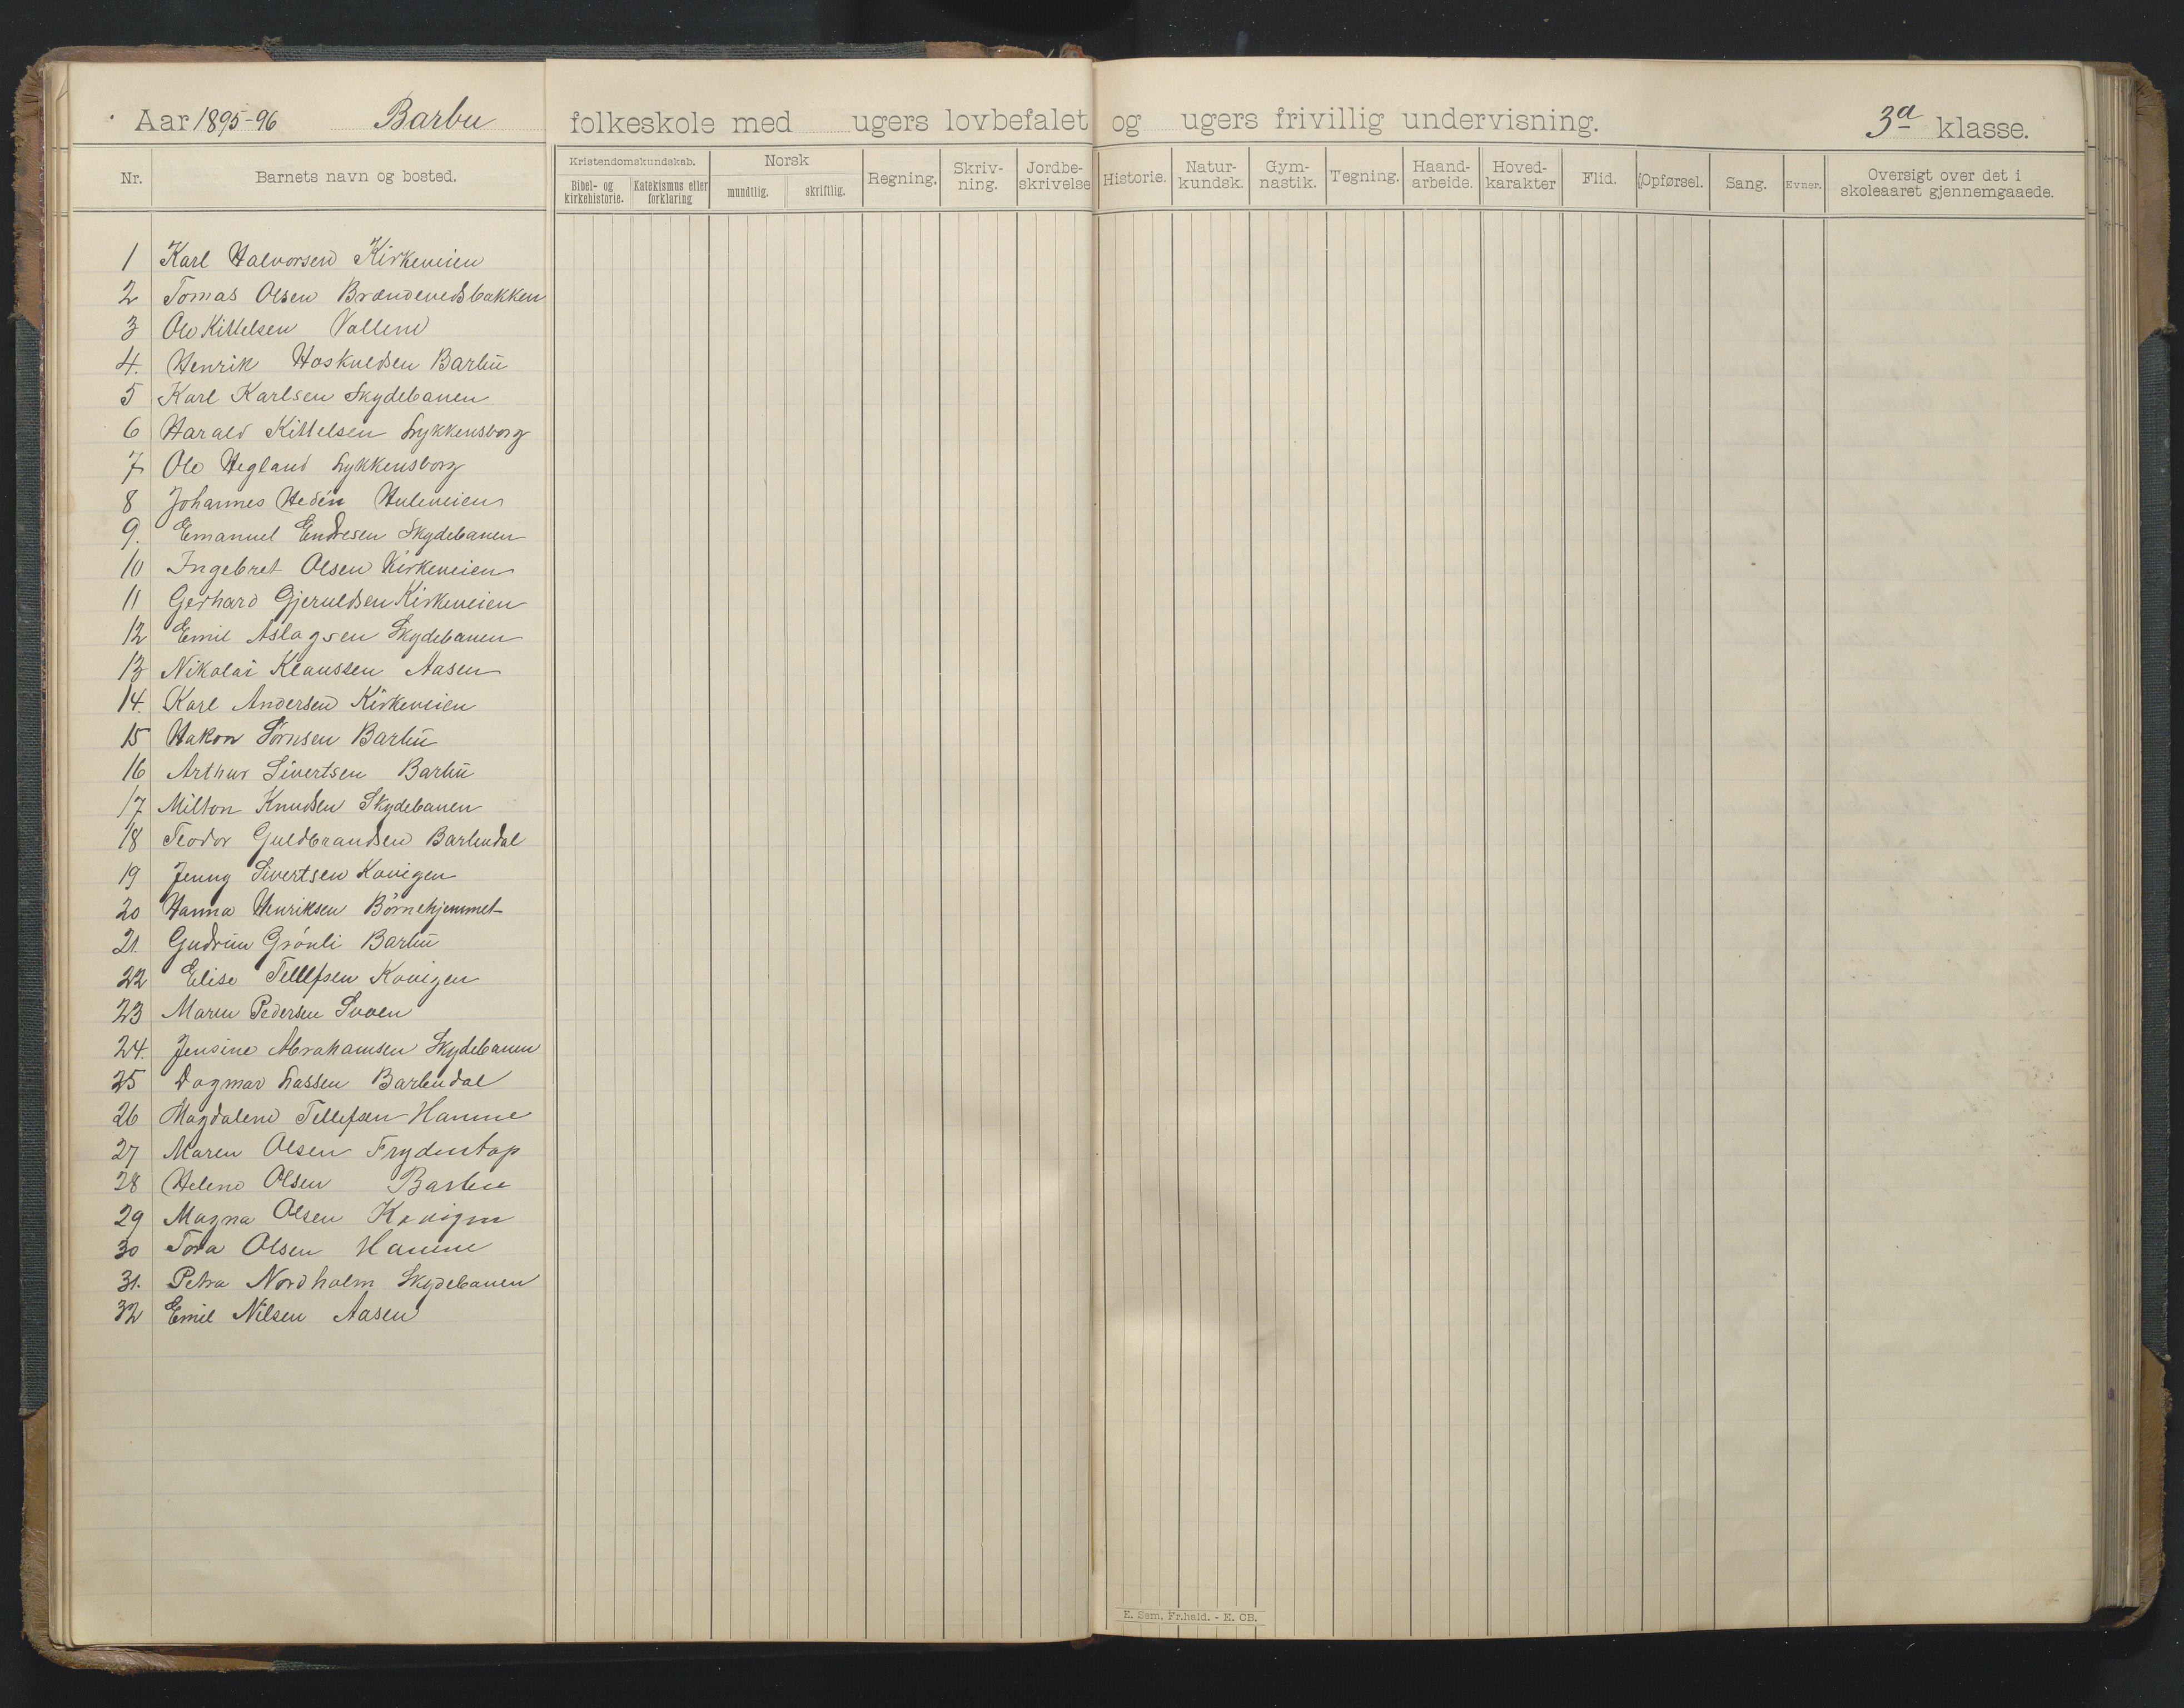 Aar 1895-96 Barbu folkeskole med ugers lovbefalet og ugers frivillig undervisning. 3a klasse.
Nr. Barnets navn og bosted. Kristendomskundskab. Bibel- og kirkehistorie. Katekismus eller forklaring Norsk mundtlig. skriftlig. Regning. Skriv-ning. Jordbe-skrivelse Historie. Natur-kundsk. Gym-nastik. Tegning. Haand-arbeide. Hoved-karakter Flid. Opførsel. Sang. Evner. Oversigt over det i skoleaaret gjennemgaaede.
1 Karl Halvorsen Kirkeveien
2 Tomas Olsen Brændevedsbakken
3 Ole Kittelsen Vollene
4. Henrik Hoskuldsen Barbu
5 Karl Karlsen Skydebanen
6 Harald Kittelsen Lykkensborg
7 Ole Hegland Lykkensborg
8 Johannes Hedén Huleveien
9. Emanuel Endresen Skydebanen
10 Ingebret Olsen Kirkeveien
11 Gerhard Gjeruldsen Kirkeveien
12 Emil Aslagsen Skydebanen
13 Nikolai Klaussen Aasen
14. Karl Andersen Kirkeveien
15 Hakon Sørnsen Barbu
16 Arthur Sivertsen Barbu
17 Milton Knudsen Skydebanen
18 Teodor Guldbrandsen Barbudal
19 Jenny Sivertsen Kovigen
20 Hanna Henriksen Börnehjemmet
21. Gudrun Grönli Barbu
22 Elise Tellefsen Kovigen
23 Maren Pedersen Svoen
24. Jensine Abrahamsen Skydebanen
25 Dagmar Lassen Barbudal
26 Magdalene Tellefsen Hamne
27 Maren Olsen Frydentop
28 Helene Olsen Barbu
29 Magna Olsen Kovigen
30 Tora Olsen Hamne
31. Petra Nordholm Skydebanen
32 Emil Nilsen Aasen
E. Sem, Fr.hald. - E. CB.